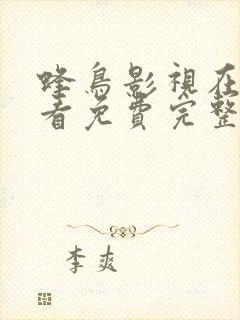 蜂鳥影視在
看免費完整
李爽